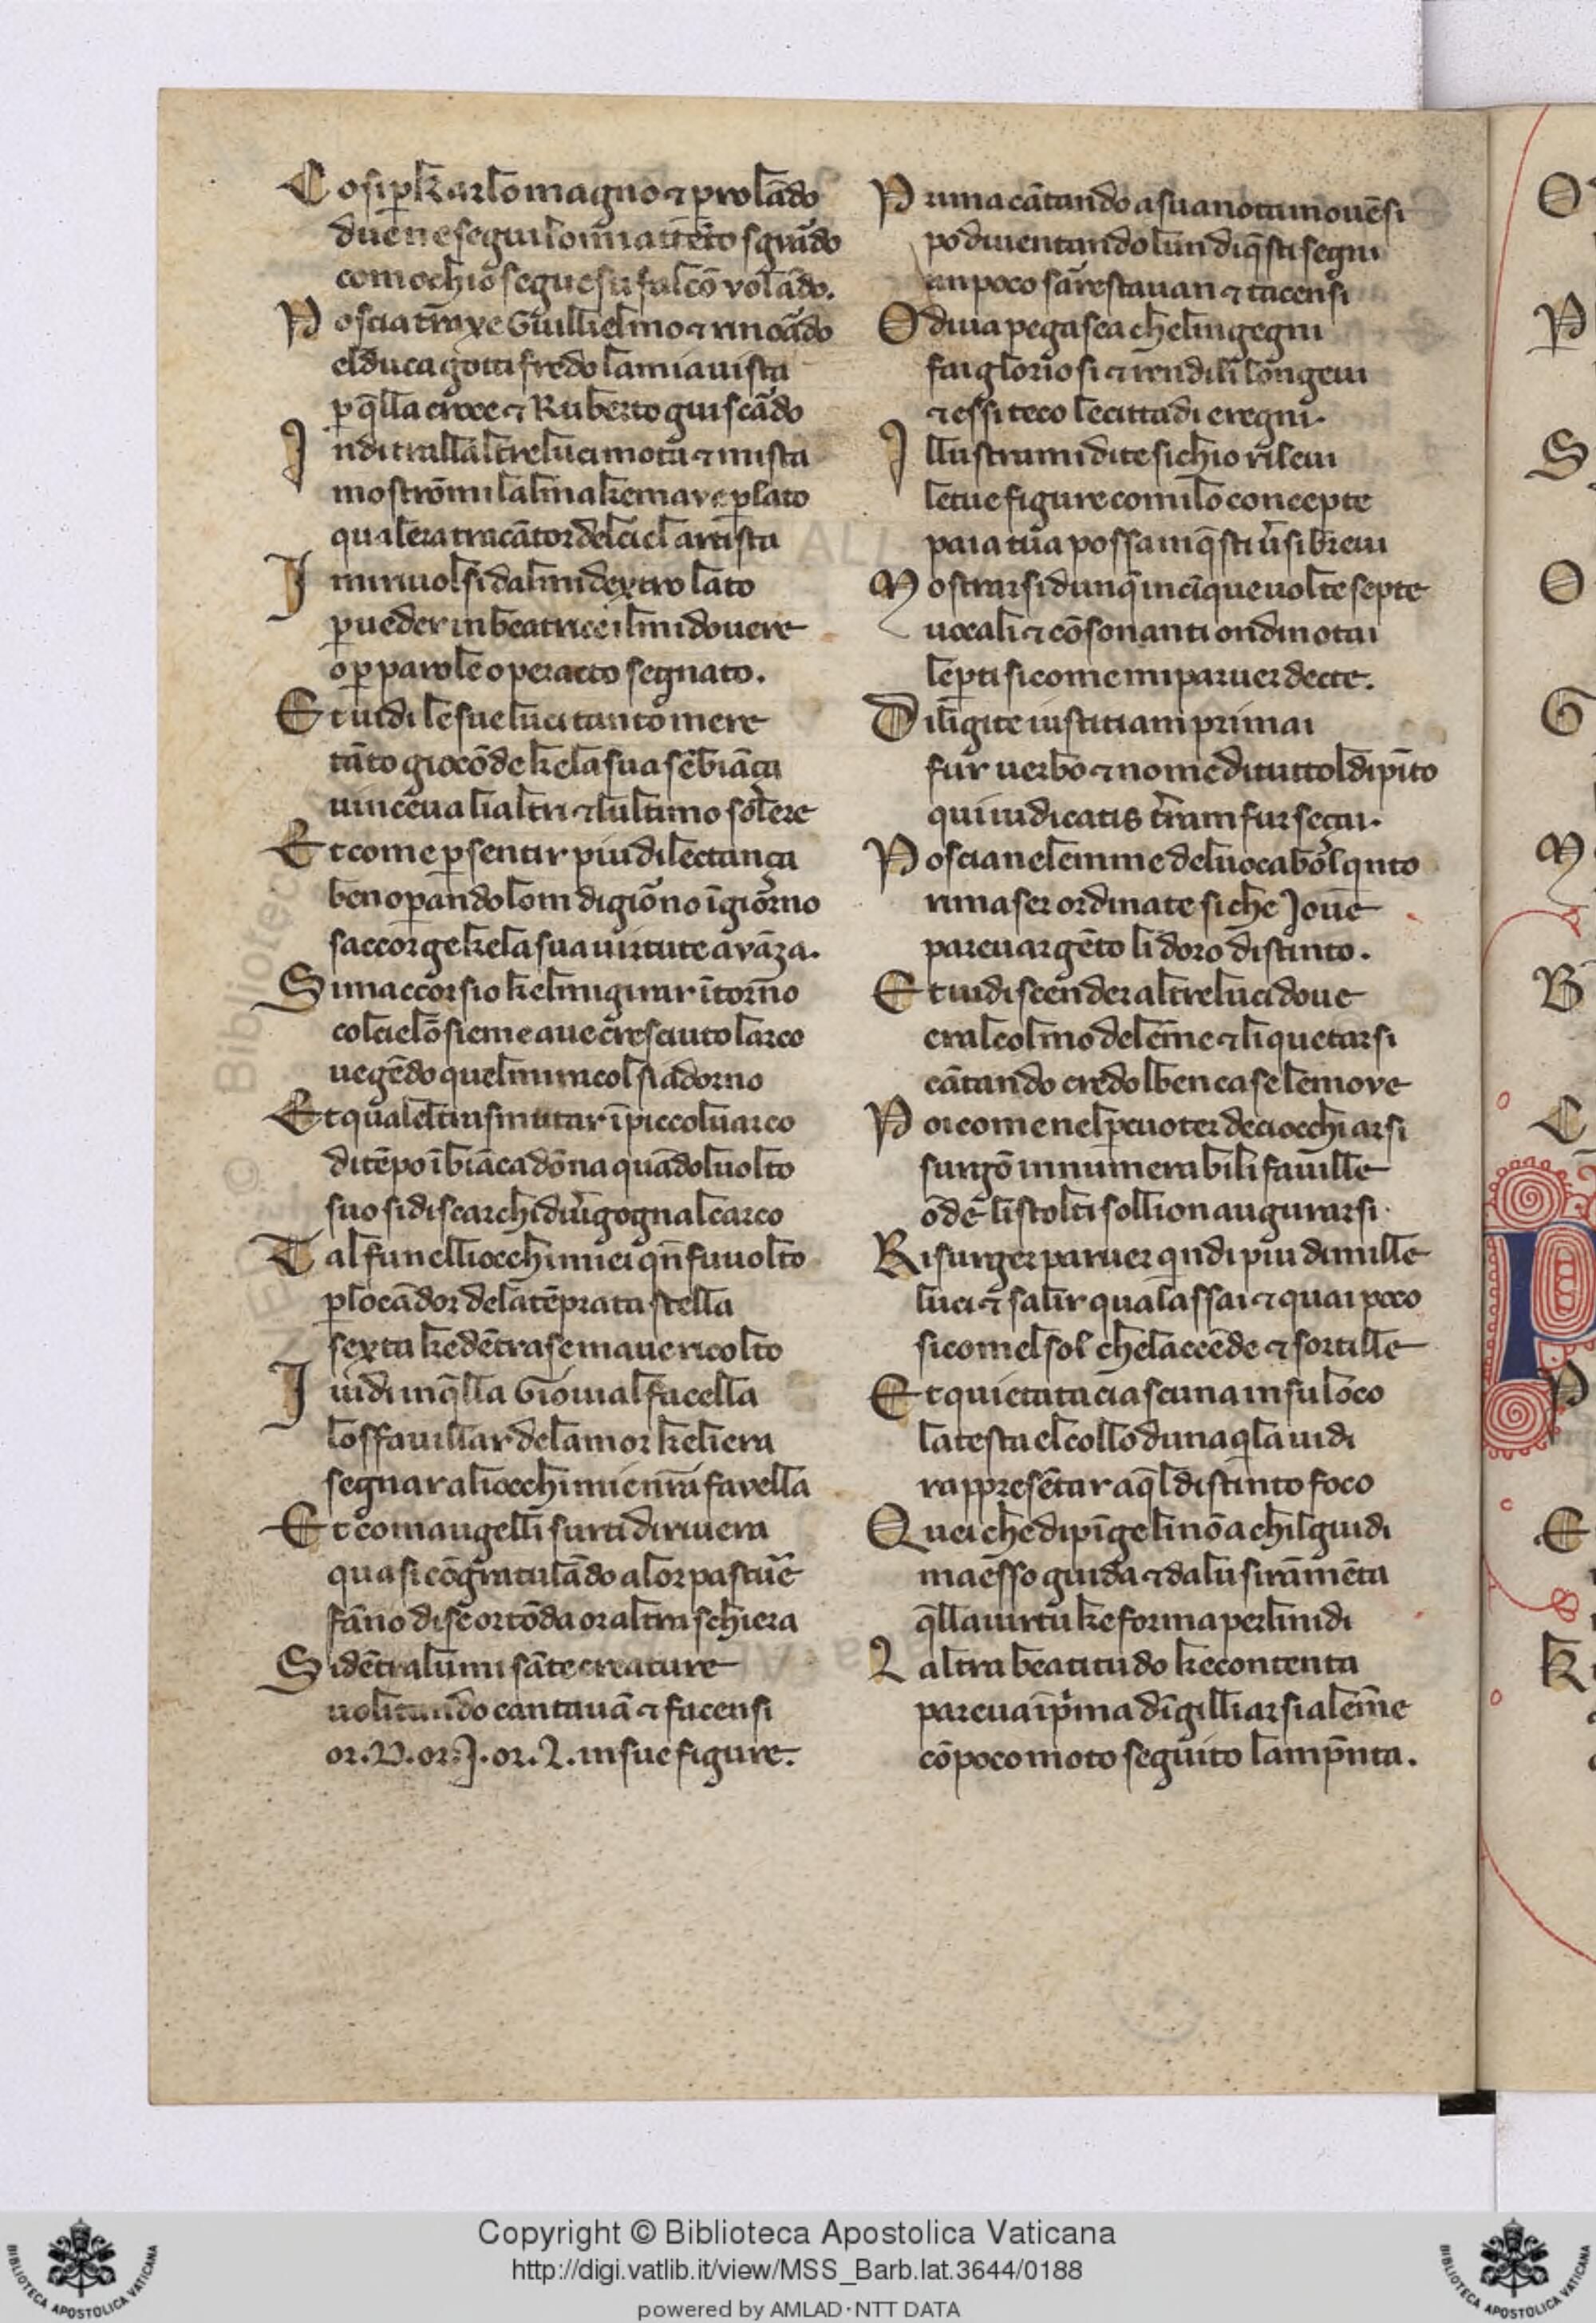 Cosi p̄ karlo magno ⁊ p rolādo
duene segui lo mi attēto sguādo
comochio segue su falcō volādo.
Poscia trāxe Guillielmo ⁊ rinoādo
el duca gottifredo la mia uista
p q̄lla croce ⁊ Ruberto guiscādo
Indi tralla altre luci mota ⁊ mista
mostrōmi lalma ke mave p̄lato
qualera tra cātor del ciel artista
I mi riuolsi dal mi dextro lato
p ueder in beatrice il mi douere
o p parole o per atto segnato.
Et uidi le sue luci tanto mere
tāto giocōde ke la sua sēbiāça
uinceua li altri ⁊ lultimo solere
Et come p sentir piu dilectança
ben opando lom di giorno ī giorno
saccorge ke la sua uirtute avāza.
Si maccorsio kel mi girar ītorno
col cielo īsieme aue cresciuto larco
uegēdo quel miracol si adorno
Et qual el trasmutar ī piccol uarco
di tēpo ī biāca dōna quādol uolto
suo si discarchi di ūgogna lcarco
Tal fu nelli occhi miei qn̄ fu uolto
p lo cādor de la tēprata stella
sexta ke dētra se mave ricolto
I uidi in q̄lla Giouial facella
lo sfauillar de lamor ke li era
segnar a li occhi miei nrā favella
Et com augelli surti di riuera
quasi cōgratulādo a lor pasture
fāno di se or tōda or altra schiera
Si dētra lumi sāte creature
uolitando cantauā ⁊ faceſsi
or .D. or .I. or .L. in sue figure.
Prima cātando a sua nota mouēsi
po diuentando lun di q̄sti segni
un poco sarrestauan ⁊ tacensi
O diua pegasea che lingegni
fai gloriosi ⁊ rendili longeui
⁊ essi teco le cittadi e regni.
Illustrami di te sichio rileui
le tue figure comilo concepte
paia tua possa in q̄sti ūsi breui
Mostrarsi dunq̄ in cīque uolte septe
uocali ⁊ cōsonanti ondi notai
le p̄ti si come mi paruer decte.
Diligite iustitiam primai
fur uerbo ⁊ nome di tutto l dipīto
qui iudicatis trāam fur seçai.
Poscia ne lemme del uocabol qnto
rimaser ordinate si che Ioue
pareua rgēto li doro distinto.
Et uidi scender altre luci doue
era l colmo de lēme ⁊ li quetarsi
cātando credo l ben ca se le move
Poi come nel pcuoter de ciocchi arsi
surgō innumerabili fauille
ōde li stolti sollion augurarsi.
Risurger paruer qndi piu di mille
luci ⁊ salir qual assai ⁊ quai poco
si come l sol che laccēde ⁊ sortille
Et quietata ciascuna in su loco
la testa el collo duna aqla uidi
rappresētar a q̄l distinto foco
Quei che dipīge li nō a chi l guidi
ma esso guida ⁊ da lu si rāmēta
q̄lla uirtu ke forma per li nidi
L altra beatitudo ke contenta
pareua ī p̄ma dīgilliarsi a lēme
cō poco moto seguito lamp̄nta.
Copyright © Biblioteca Apostolica Vaticana
http://digi.vatlib.it/view/MSS_Barb.lat.3644/0188
powered by AMLAD·NTT DATA